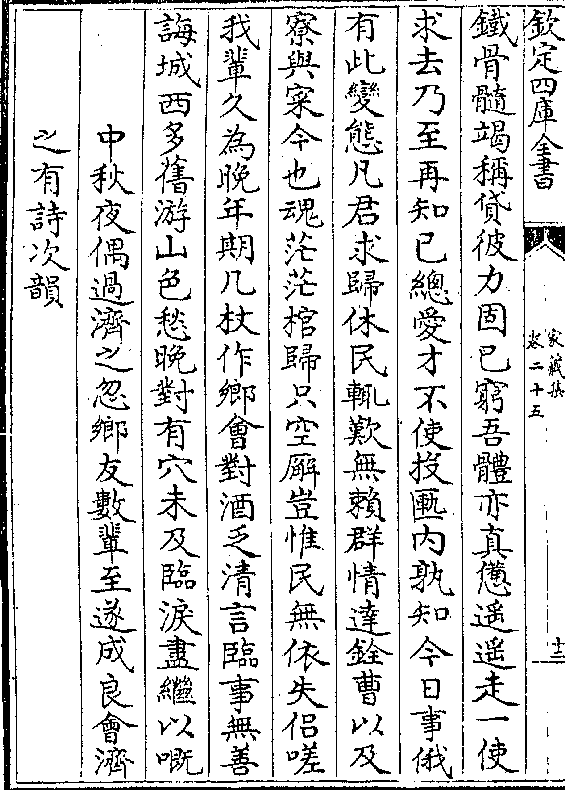 欽定四庫全書
家藏集
卷二十五
十三
鐵骨髓竭稱貸彼力固已窮吾體亦真憊遥遥走一使
求去乃至再知已總愛才不使投匭内孰知今日事俄
有此變態凡君求歸休民輒歎無賴群情達銓曹以及
寮與寀今也魂茫茫棺歸只空廨豈惟民無依失侣嗟
我輩久為晚年期几杖作鄉會對酒乏清言臨事無善
誨城西多舊游山色愁晚對有穴未及臨淚盡繼以嘅
中秋夜偶過濟之忽鄉友數輩至遂成良會濟
之有詩次韻